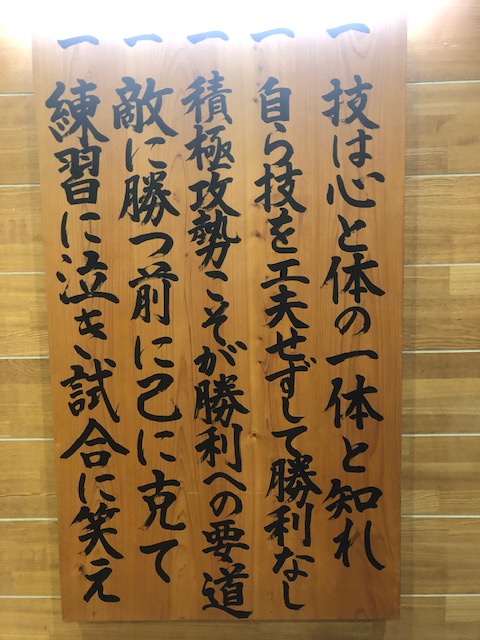 一 技は心と体の一体と知れ
一 自ら技を工夫せずして勝利なし
一 積極攻勢こそが勝利への要道
一 敵に勝つ前に己に克て
一 練習に泣き試合に笑え